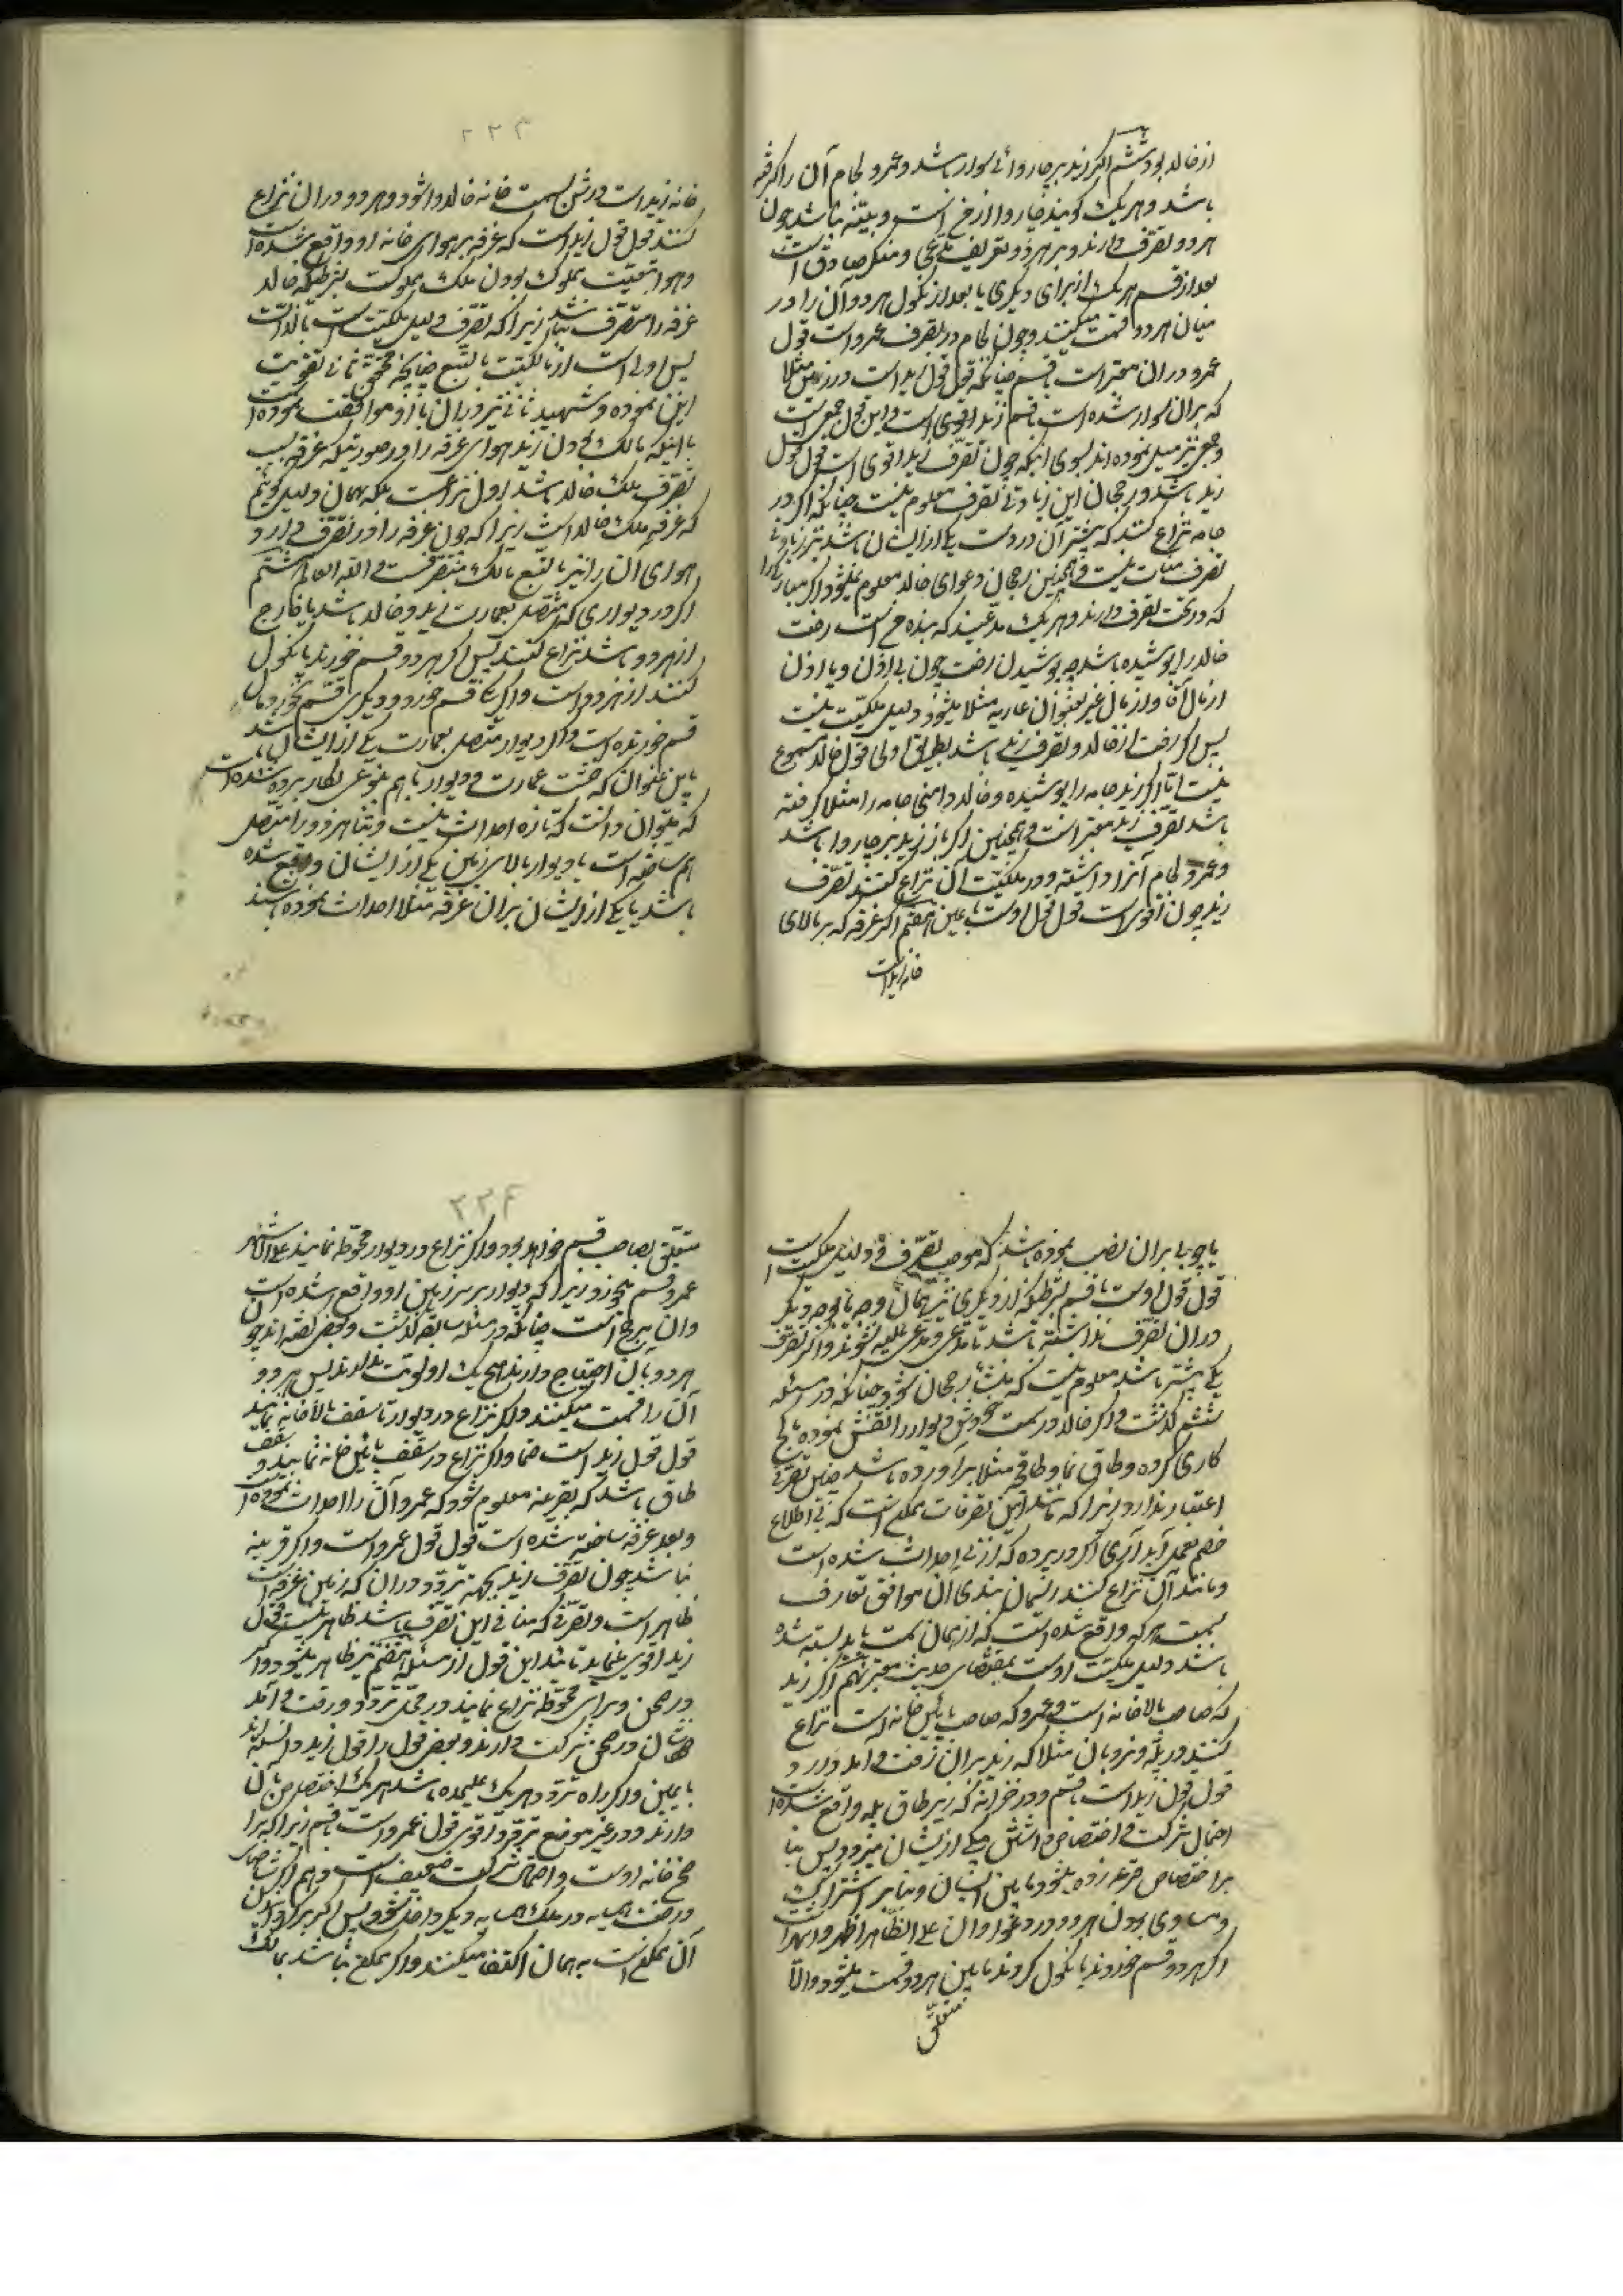 از خالد بود ششم اگر زید بر چاروائی سوار باشد و عمرو لجام آن را گرفته
باشد و هر یک گویند چاروا از من است و بینه نباشد چون
هر دو تصرف دارند و بر هر دو تعریف مدعی و منکر صادق است
بعد از قسم هر یک از برای دیگری یا بعد از نکول هر دو آن را در
میان هر دو قسمت میکنند و چون لجام در تصرف عمرو است قول
عمرو در آن معتبر است بقسم چنانکه قول قول زید است در زین مثلا
که بر آن سوار شده است بقسم زید اقوی است و این قول جمعی است
و جمعی نیز میل نموده اند بسوی اینکه چون تصرف زید اقوی است قول قول
زید باشد و رجحان این زیادتی تصرف معلوم نیست چنانکه اگر در
جامه نزاع کنند که بیشتر آن در دست یکی از ایشان باشد نیز زیادتی
تصرف مثبت نیست و همچنین رجحان دعوای خالد معلوم نمیشود اگر
که در تحت تصرف دارند و هر یک مدعیند که بنده من است رخت
خالد را پوشیده باشد چه پوشیدن رخت چون بی اذن و یا اذن
از مال آقا و از مال غیر بعنوان عاریه مثلا میشود دلیل ملکیت نیست
پس اگر رخت از خالد و تصرف زید باشد بطریق اولی قول خالد مسموع
نیست اما اگر زید جامه را پوشیده و خالد دامن جامه را مثلا گرفته
باشد تصرف زید معتبر است و همچنین اگر بار زید بر چاروا باشد
و عمرو لجام آنرا داشته و در ملکیت آن نزاع کنند تصرف
زید چون اقوی است قول قول اوست با یمین هفتم اگر غرفه که بر بالای
خانه زید است
۲۲۳
خانه زید است درش بسمت خانه خالد وا شود و هر دو در آن نزاع
کنند قول قول زید است که غرفه بر هوای خانه او واقع شده است
و هوا بتبعیت مملوک بودن ملک مملوکست بشرطیکه خالد
غرفه را متصرف نباشد زیرا که تصرف دلیل ملکیت است بالذات
پس اولی است از مالکیت بالتبع چنانچه محقق ثانی تقویت
این نموده و شهید ثانی نیز در آن با او موافقت نموده است
با اینکه مالک بودن زید هوای غرفه را در صورتیکه غرفه بسبب
تصرف ملک خالد باشد اول نزاع است بلکه بهمان دلیل گوئیم
که غرفه ملک خالد است زیرا که چون غرفه را در تصرف دارد
هوای آن را نیز بالتبع مالک و متصرفست و الله العالم هشتم
اگر در دیواری که متصل بعمارت زید و خالد باشد یا خارج
از هر دو باشد نزاع کنند پس اگر هر دو قسم خورند یا نکول
کنند از هر دو است و اگر یکی قسم خورد و دیگری قسم نخورد مال
قسم خورنده است و اگر دیوار متصل بعمارت یکی از ایشان باشد
باین عنوان که خشت عمارت و دیوار با هم بنوعی بکار برده شده است
که میتوان دانست که تازه احداث نیست و بنا هر دو را متصل
هم ساخته است یا دیوار بالای زمین یکی از ایشان واقع شده
باشد یا یکی از ایشان بر آن غرفه مثلا احداث نموده باشند
یا چوبی بر آن نصب نموده باشد که موجب تصرف و دلیل ملکیت است
قول قول اوست با قسم بشرطیکه از دیگری نیز بهمان وجه یا بوجه دیگر
در آن تصرف نداشته باشد تا مدعی و مدعی علیه نشوند و اگر تصرف
یکی بیشتر باشد معلوم نیست که منشأ رجحان شود چنانکه در مسئله
ششم گذشت و اگر خالد در سمت خودش دیوار را نقش نموده یا گچ
کاری کرده و طاق نما و طاقچه مثلا برآورده باشد چنین تصرفی
اعتبار ندارد زیرا که مانند این تصرفات ممکن است که بی اطلاع
خصم بعمل آید آری اگر در پرده که از نی احداث شده است
و مانند آن نزاع کنند ریسمان بندی آن موافق تعارف
بسمت هر که واقع شده است که از همان سمت باید بسته شده
باشد دلیل ملکیت اوست بمقتضای حدیث معتبر نهم اگر زید
که صاحب بالاخانه است و عمرو که صاحب پائین خانه است نزاع
کنند در پله و نردبان مثلا که زید بر آن رفت و آمد دارد
قول قول زید است بقسم و در خزانه که زیر طاق پله واقع شده است
احتمال شرکت و اختصاص داشتن یکی از ایشان میرود پس بنا
بر اختصاص قرعه زده میشود مابین ایشان و بنا بر اشتراک
و مساوی بودن هر دو در دعوا و آن علی الظاهر اظهر و اشهر است
اگر هر دو قسم خوردند یا نکول کردند مابین هر دو قسمت میشود و الا
متعلق
۲۲۴
متعلق بصاحب قسم خواهد بود و اگر نزاع در دیوار محوطه نمایند علی الاشهر
عمرو قسم میخورد زیرا که دیوار بر سر زمین او واقع شده است
و آن مرجح است چنانکه در مسئله سابقه گذشت و بعضی گفته اند چون
هر دو بآن احتیاج دارند هیچ یک اولویت ندارند پس هر دو
آن را قسمت میکنند و اگر نزاع در دیوار تا سقف بالاخانه نمایند
قول قول زید است جزما و اگر نزاع در سقف پائین خانه نمایند و سقف
طاق باشد که بقرینه معلوم شود که عمرو آن را احداث نموده است
و بعد غرفه ساخته شده است قول قول عمرو است و اگر قرینه
نباشد چون تصرف زید بجهة تردد در آن که زمین غرفه است
ظاهر است و تصرفی که منافی این تصرف باشد ظاهر نیست قول
زید اقوی مینماید تأیید این قول از مسئله هفتم نیز ظاهر میشود و اگر
در صحن و سرای محوطه نزاع نمایند در محل تردد و رفت و آمد
ایشان در صحن شرکت دارند و بعضی قول را قول زید دانسته اند
با یمین و اگر راه تردد هر یک علیحده باشد هر یک اختصاص بآن
دارند و در غیر موضع تردد اقوی قول عمرو است بقسم زیرا که سرا
صحن خانه اوست و احتمال شرکت ضعیف است دهم اگر شاخهای
درخت همسایه در ملک همسایه دیگر داخل شود پس اگر برگردانیدن
آن ممکن است به همان اکتفا میکنند و اگر ممکن نباشد بمالک